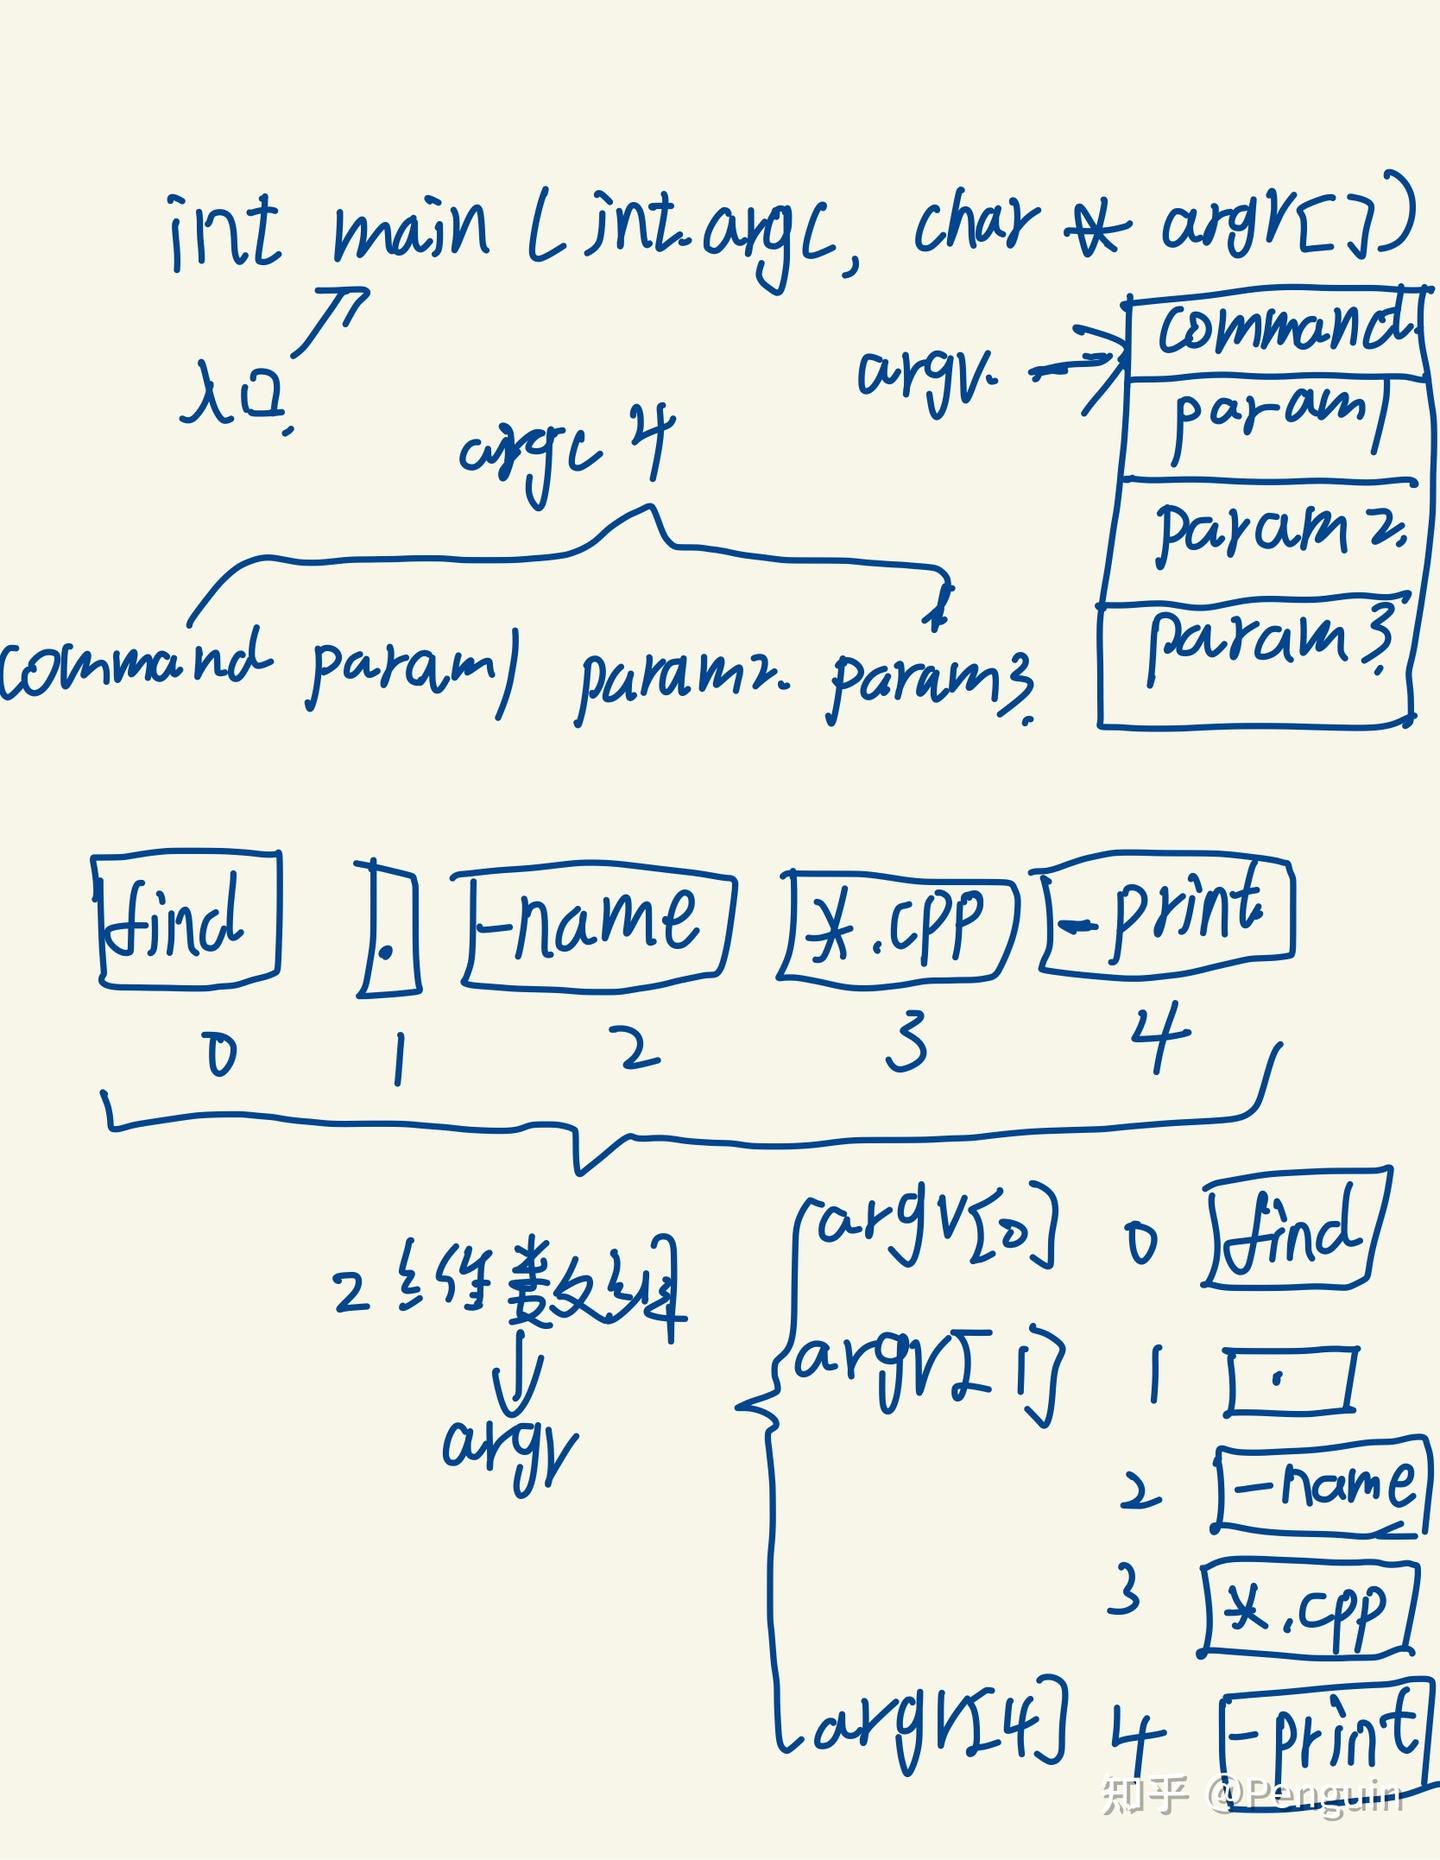 int main (int argc, char * argv[])
入口.
argc 4
argv.
command
param1
param2.
param3.
command param1 param2. param3.
find . -name *.cpp -print
0 1 2 3 4
2维数组
argv
argv[0] 0 find
argv[1] 1 .
2 -name
3 *.cpp
argv[4] 4 -print
知乎 @Penguin